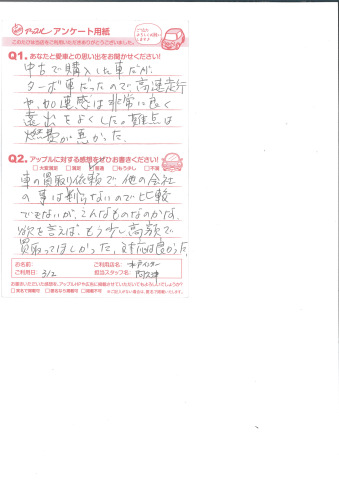 アップル アンケート用紙
このたびは当店をご利用いただきありがとうございました。
Q1. あなたと愛車との思い出をお聞かせください!
中古で購入した車だが、
ターボ車だったので高速走行
や加速感は非常に良く
遠出をよくした。難点は
燃費が悪かった。
Q2. アップルに対する感想をぜひお書きください!
□大変満足 □満足 普通 □もう少し □不満
車の買取り依頼で他の会社
の事は判らないので比較
でもないが、こんなものなのかな。
欲を言えば、もう少し高額で
買取ってほしかった。対応は良かった。
お名前: ご利用店名: 水戸インター
ご利用日: 3/2 担当スタッフ名: 阿久津
お書きいただいた感想を、アップルHPや広告に掲載させていただいてもよろしいでしょうか?
□実名で掲載可 □匿名なら掲載可 □掲載不可